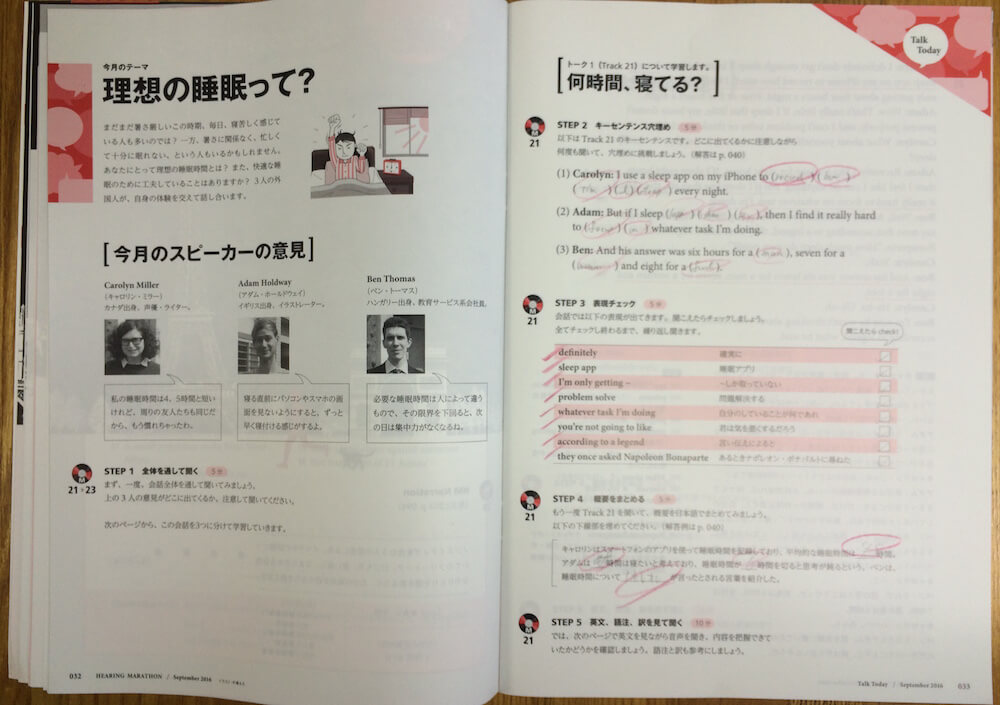 今月のテーマ
理想の睡眠って?
まだまだ暑さ厳しいこの時期、毎日、寝苦しく感じて
いる人も多いのでは? 一方、暑さに関係なく、忙しく
て十分に眠れない、という人もいるかもしれません。
あなたにとって理想の睡眠時間とは? また、快適な睡
眠のために工夫していることはありますか? 3人の外
国人が、自身の体験を交えて話し合います。
[今月のスピーカーの意見]
Carolyn Miller
(キャロリン・ミラー)
カナダ出身、声優・ライター。
Adam Holdway
(アダム・ホールドウェイ)
イギリス出身、イラストレーター。
Ben Thomas
(ベン・トーマス)
ハンガリー出身、教育サービス系会社員。
私の睡眠時間は4、5時間と短い
けれど、周りの友人たちも同じだ
から、もう慣れちゃったわ。
寝る直前にパソコンやスマホの画
面を見ないようにすると、ずっと
早く寝付ける感じがするよ。
必要な睡眠時間は人によって違う
もので、その限界を下回ると、次
の日は集中力がなくなるね。
M
21▸23
STEP 1 全体を通して聞く 5分
まず、一度、会話全体を通して聞いてみましょう。
上の3人の意見がどこに出てくるか、注意して聞いてください。
次のページから、この会話を3つに分けて学習していきます。
032 HEARING MARATHON / September 2016
Talk
Today
トーク1(Track 21)について学習します。
[何時間、寝てる?]
M
21
STEP 2 キーセンテンス穴埋め 5分
以下は Track 21 のキーセンテンスです。どこに出てくるかに注意しながら
何度も聞いて、穴埋めに挑戦しましょう。(解答は p. 040)
(1) Carolyn: I use a sleep app on my iPhone to ( ) ( )
( ) ( ) ( ) every night.
(2) Adam: But if I sleep ( ) ( ) ( ), then I find it really hard
to ( ) ( ) whatever task I'm doing.
(3) Ben: And his answer was six hours for a ( ), seven for a
( ) and eight for a ( ).
M
21
STEP 3 表現チェック 5分
会話では以下の表現が出てきます。聞こえたらチェックしましょう。
全てチェックし終わるまで、繰り返し聞きます。
聞こえたら check!
definitely 確実に
sleep app 睡眠アプリ
I'm only getting ~ ~しか取っていない
problem solve 問題解決する
whatever task I'm doing 自分のしていることが何であれ
you're not going to like 君は気を悪くするだろう
according to a legend 言い伝えによると
they once asked Napoleon Bonaparte あるときナポレオン・ボナパルトに尋ねた
M
21
STEP 4 概要をまとめる 5分
もう一度 Track 21 を聞いて、概要を日本語でまとめてみましょう。
以下の下線部を埋めてください。(解答例は p. 040)
キャロリンはスマートフォンのアプリを使って睡眠時間を記録しており、平均的な睡眠時間は 時間。
アダムは 時間は寝たいと考えており、睡眠時間が 時間を切ると思考が鈍るという。ベンは、
睡眠時間について が言ったとされる言葉を紹介した。
M
21
STEP 5 英文、語注、訳を見て聞く 10分
では、次のページで英文を見ながら音声を聞き、内容を把握できて
いたかどうかを確認しましょう。語注と訳も参考にしましょう。
Talk Today / September 2016 033